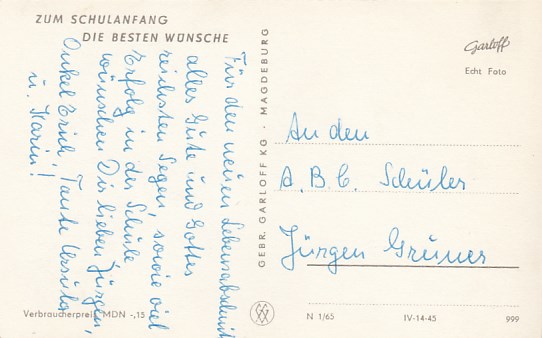 ZUM SCHULANFANG
DIE BESTEN WÜNSCHE
Für den neuen Lebensabschnitt
alles Gute und Gottes
reichsten Segen, sowie viel
Erfolg in der Schule
wünschen Dir lieber Jürgen,
Onkel Erich, Tante Ursula
u. Karin!
Verbraucherpreis MDN -,15
GEBR. GARLOFF KG · MAGDEBURG
Garloff
Echt Foto
An den
A.B.C. Schüler
Jürgen Grüner
N 1/65 IV-14-45 999